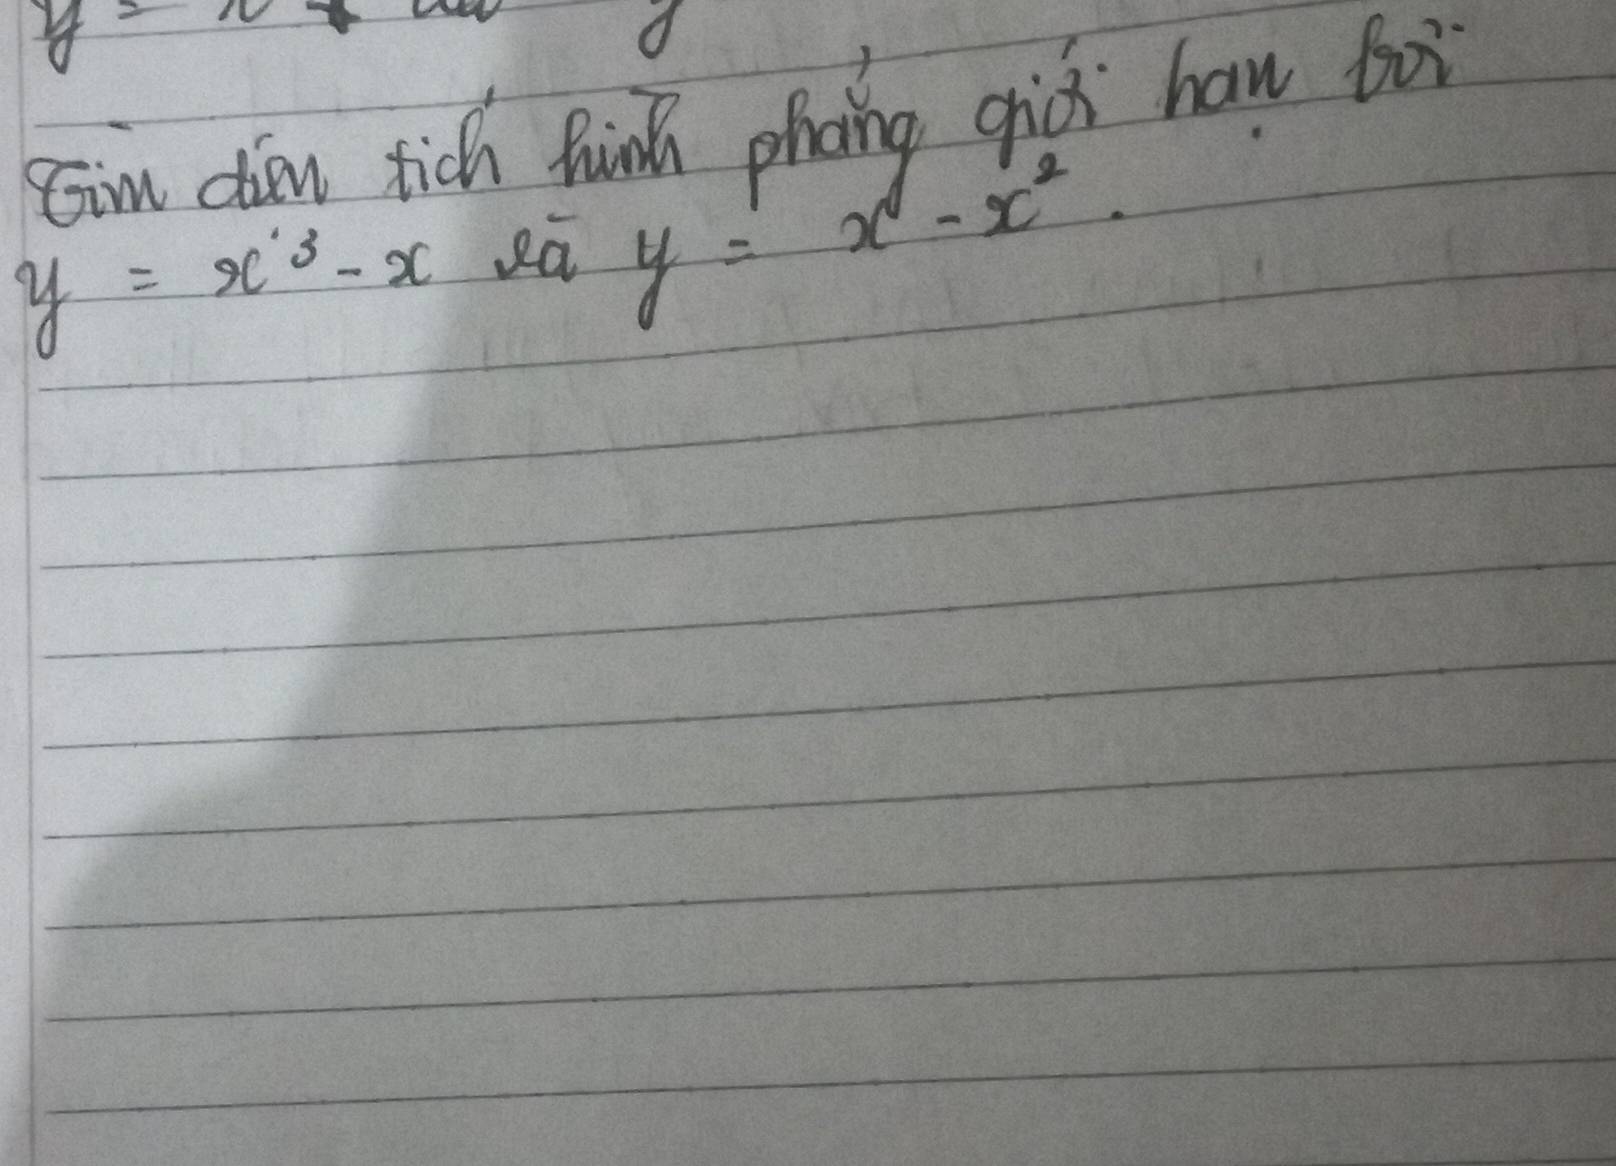 Tìm diện tích hình phẳng giới hạn bởi
y = x³ - x và y = x - x².